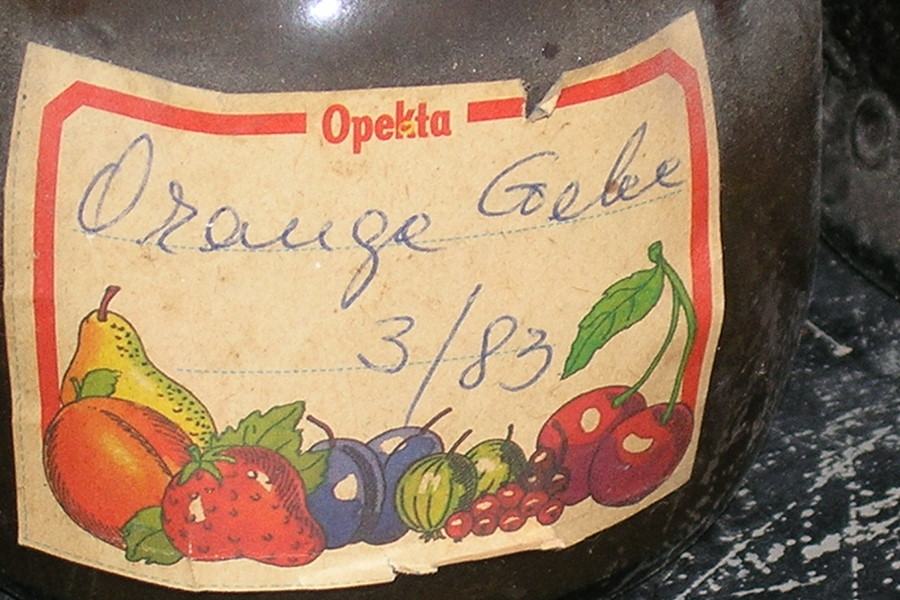 Opekta
Orange Goebe
3/83